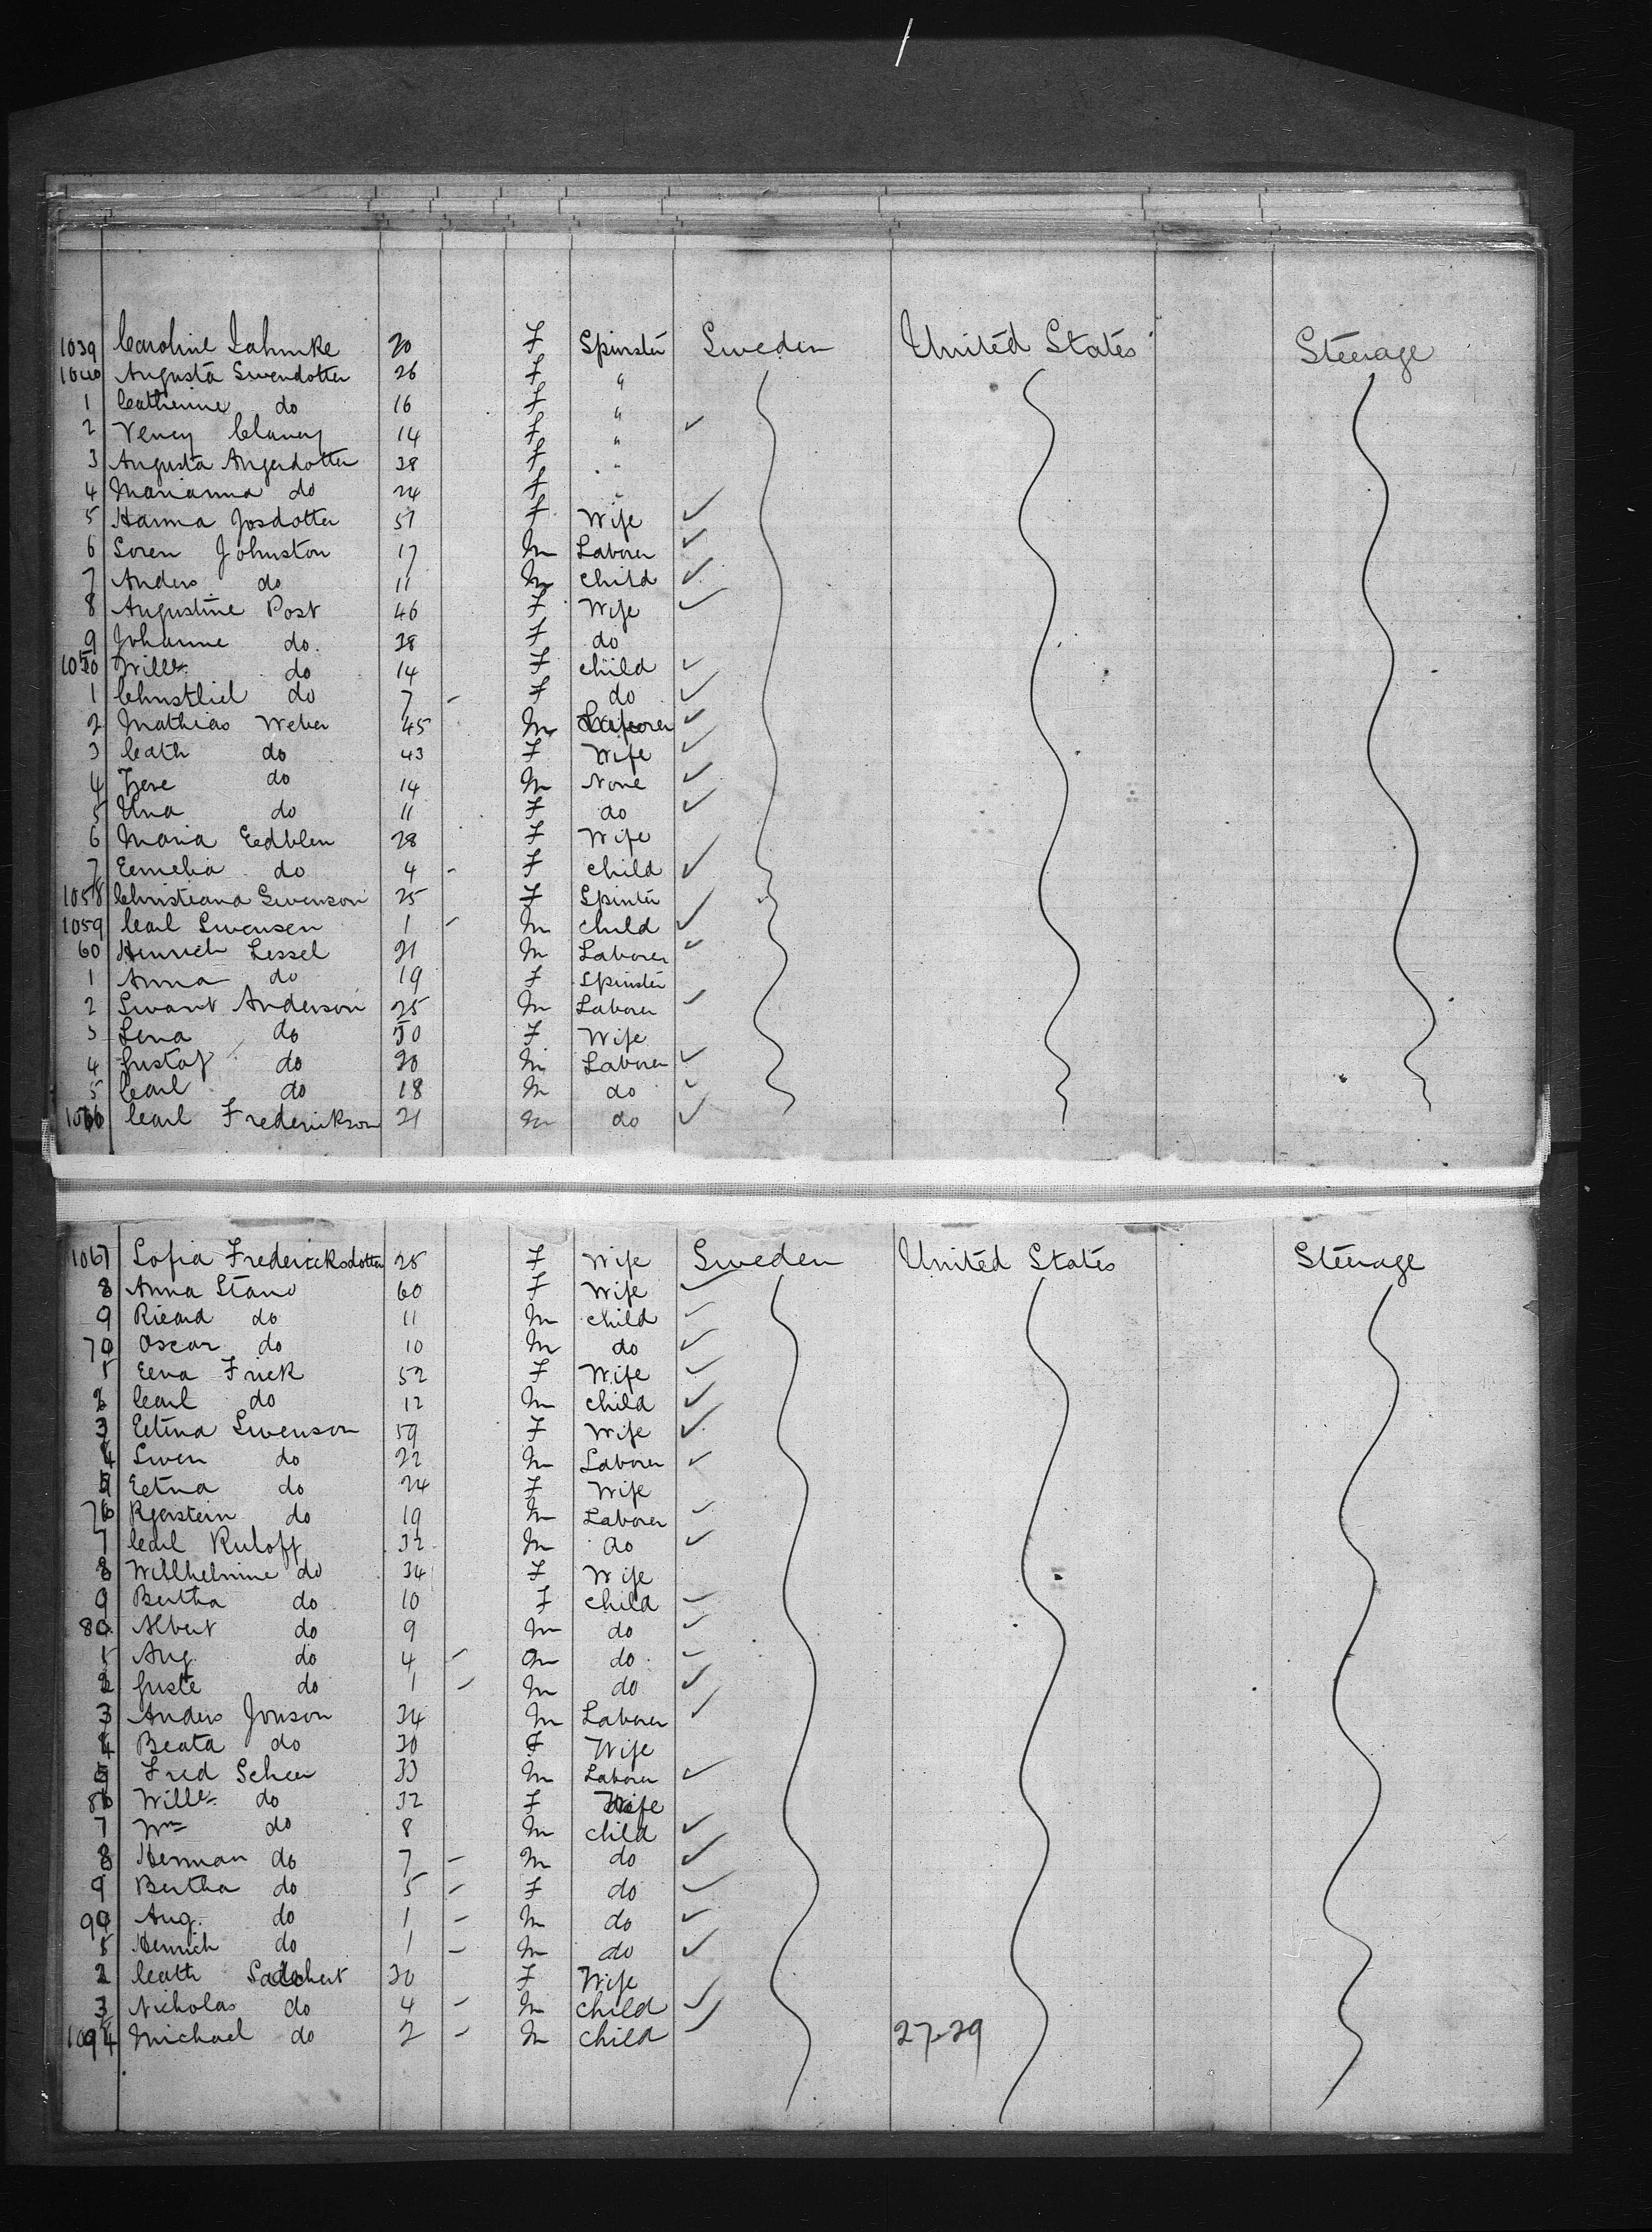 1039 Caroline Lahmke 20 F Spinster Sweden United States Steerage
1040 Augusta Swendotter 26 F "
1 Catherine do 16 F "
2 Veney Claney 14 F "
3 Augusta Angerdotter 28 F "
4 Marianna do 24 F "
5 Hanna Josdotter 51 F Wife
6 Soren Johnston 17 M Laborer
7 Anders do 11 M Child
8 Augustine Post 46 F Wife
9 Johanne do. 28 F do
1050 Wille do 14 F child
1 Christliel do 7 - F do
2 Mathias Weber 45 M Laborer
3 Cath do 43 F Wife
4 do 14 M None
5 Una do 11 F do
6 Maria Eedblen 28 F Wife
7 Eemelia do 4 - F child
1058 Christiana Swenson 25 F Spinster
1059 Carl Swensen 1 - M child
60 Heinrich Lessel 21 M Laborer
1 Anna do 19 F Spinster
2 Swant Anderson 25 M Laborer
3 Lena do 50 F Wife
4 Gustaf do 20 M Laborer
5 Carl do 18 M do
1066 Carl Frederikson 21 M do
1067 Sofia Fredericksdotter 25 F Wife Sweden United States Steerage
8 Anna Stano 60 F Wife
9 Ricard do 11 M child
70 Oscar do 10 M do
1 Eeva Frick 52 F Wife
2 Carl do 12 M child
3 Eetina Swenson 59 F Wife
4 Swen do 22 M Laborer
5 Eetna do 24 F Wife
76 do 19 M Laborer
7 Carl Ruloff 32 M do
8 Willhelmine do 34 F Wife
9 Bertha do 10 F child
80 Albert do 9 M do
1 Aug. do 4 - M do
2 Guste do 1 - M do
3 Anders Jonson 34 M Laborer
4 Beata do 30 F Wife
5 Fred Scheer 33 M Laborer
86 Wille do 32 F Wife
7 Wm do 8 M child
8 Herman do 7 - M do
9 Bertha do 5 - F do
90 Aug. do 1 - M do
1 Henrich do 1 - M do
2 Cath 30 F Wife
3 Nicholas do 4 - M child
1094 Michael do 2 - M child 27-29